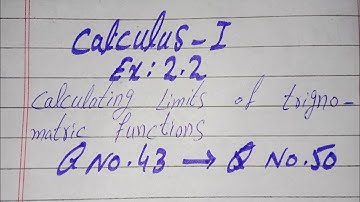 Calculus-I
Ex: 2.2
Calculating Limits of trigno-
matric functions
Q No.43 → Q No.50